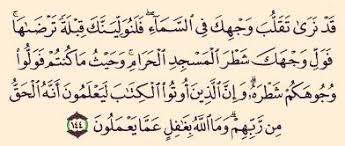 قَدْ نَرَىٰ تَقَلُّبَ وَجْهِكَ فِى ٱلسَّمَآءِ ۖ فَلَنُوَلِّيَنَّكَ قِبْلَةً تَرْضَىٰهَا ۚ
فَوَلِّ وَجْهَكَ شَطْرَ ٱلْمَسْجِدِ ٱلْحَرَامِ ۚ وَحَيْثُ مَا كُنتُمْ فَوَلُّوا۟
وُجُوهَكُمْ شَطْرَهُۥ ۗ وَإِنَّ ٱلَّذِينَ أُوتُوا۟ ٱلْكِتَٰبَ لَيَعْلَمُونَ أَنَّهُ ٱلْحَقُّ
مِن رَّبِّهِمْ ۗ وَمَا ٱللَّهُ بِغَٰفِلٍ عَمَّا يَعْمَلُونَ ١٤٤